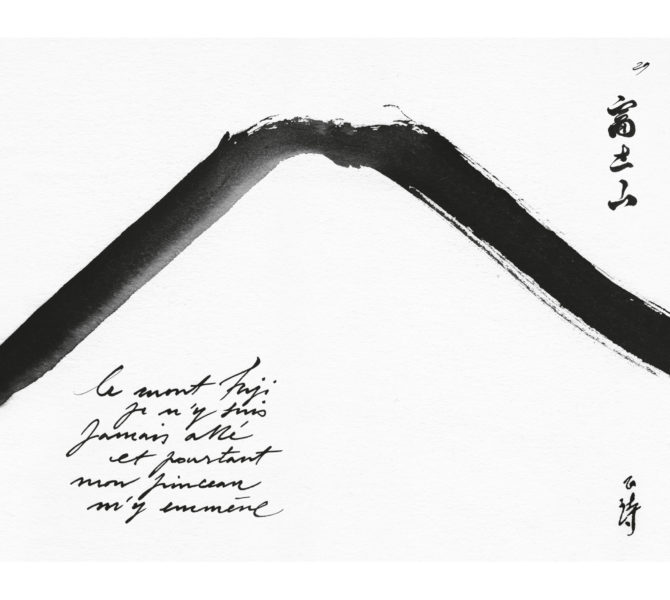 富士山
le mont Fuji
je n'y suis
jamais allé
et pourtant
mon pinceau
m'y emmène